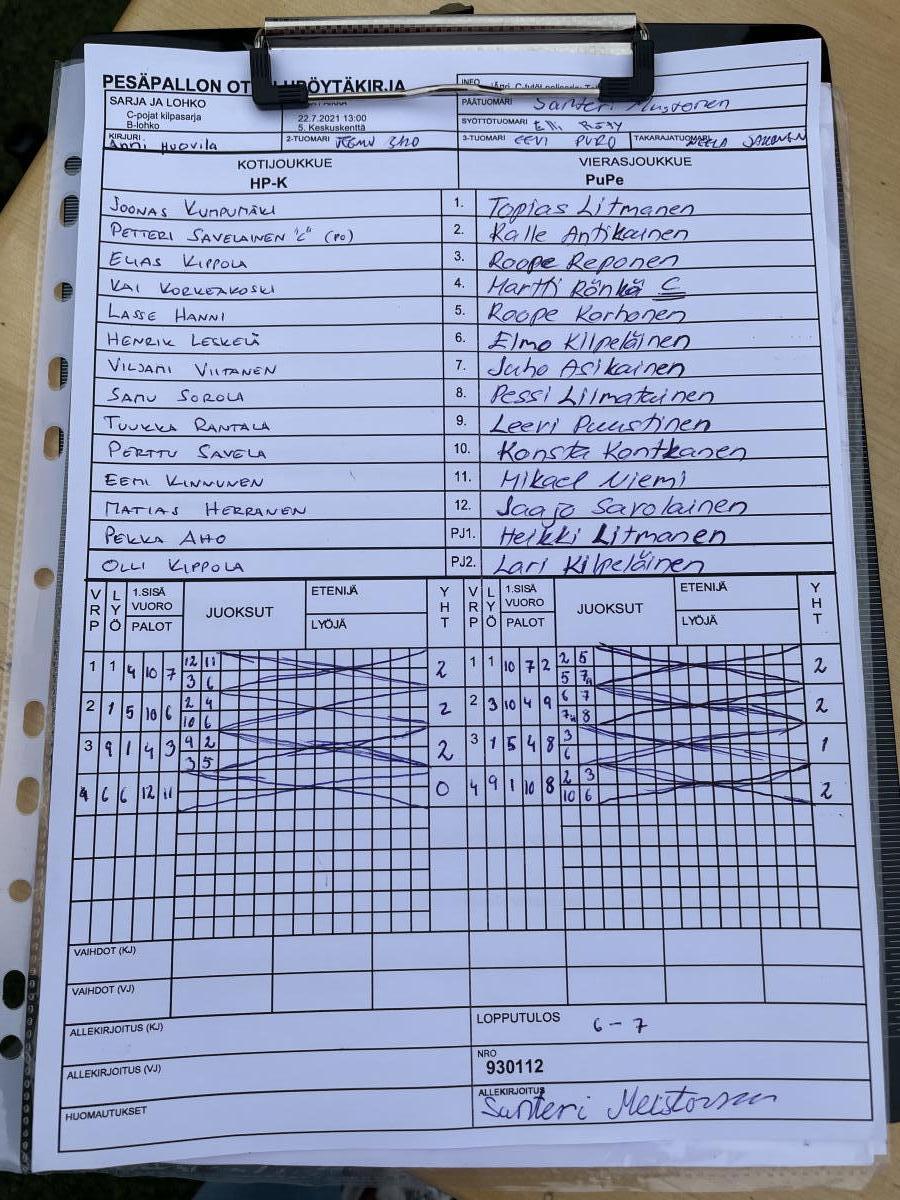 PESÄPALLON
INFO
SARJA JA LOHKO
C-pojat kilpasarja
B-lohko
22.7.2021 13:00
5. Keskuskenttä
PÄÄTUOMARI Santeri Mustonen
SYÖTTÖTUOMARI
KIRJURI Anni Huovila
2-TUOMARI
3-TUOMARI EEVI PURO
TAKARAJATUOMARI
KOTIJOUKKUE VIERASJOUKKUE
HP-K PuPe
JOONAS KUMPUMÄKI 1. Topias Litmanen
PETTERI SAVELAINEN "C" (PO) 2. Ralle Antikainen
ELIAS KIPPOLA 3. Roope Reponen
KAI KORKEAKOSKI 4. Martti Rönkä C
LASSE HANNI 5. Roope Korhonen
HENRIK LESKELÄ 6. Elmo Kilpeläinen
VILJAMI VIITANEN 7. Juho Asikainen
SAMU SOROLA 8. Pessi Lilmatainen
TUUKKA RANTALA 9. Leevi Puustinen
PERTTU SAVELA 10. Konsta Kontkanen
EEMI KINNUNEN 11. Mikael Niemi
MATIAS HERRANEN 12. Jaajo Savolainen
PEKKA AHO PJ1. Heikki Litmanen
OLLI KIPPOLA PJ2. Lari Kilpeläinen
VRP LYÖ 1.SISÄ VUORO PALOT JUOKSUT ETENIJÄ LYÖJÄ YHT VRP LYÖ 1.SISÄ VUORO PALOT JUOKSUT ETENIJÄ LYÖJÄ YHT
1 1 4 10 7 12 11 2 1 1 10 7 2 2 5 2
3 6 5 7
2 1 5 10 6 2 4 2 2 3 10 4 9 6 7 2
10 6 7 8
3 9 1 4 3 9 2 2 3 1 5 4 8 3 1
3 5 6
4 6 6 12 11 0 4 9 1 10 8 2 3 2
10 6
VAIHDOT (KJ)
VAIHDOT (VJ)
ALLEKIRJOITUS (KJ)
LOPPUTULOS 6 - 7
ALLEKIRJOITUS (VJ)
NRO
930112
HUOMAUTUKSET
ALLEKIRJOITUS
Santeri